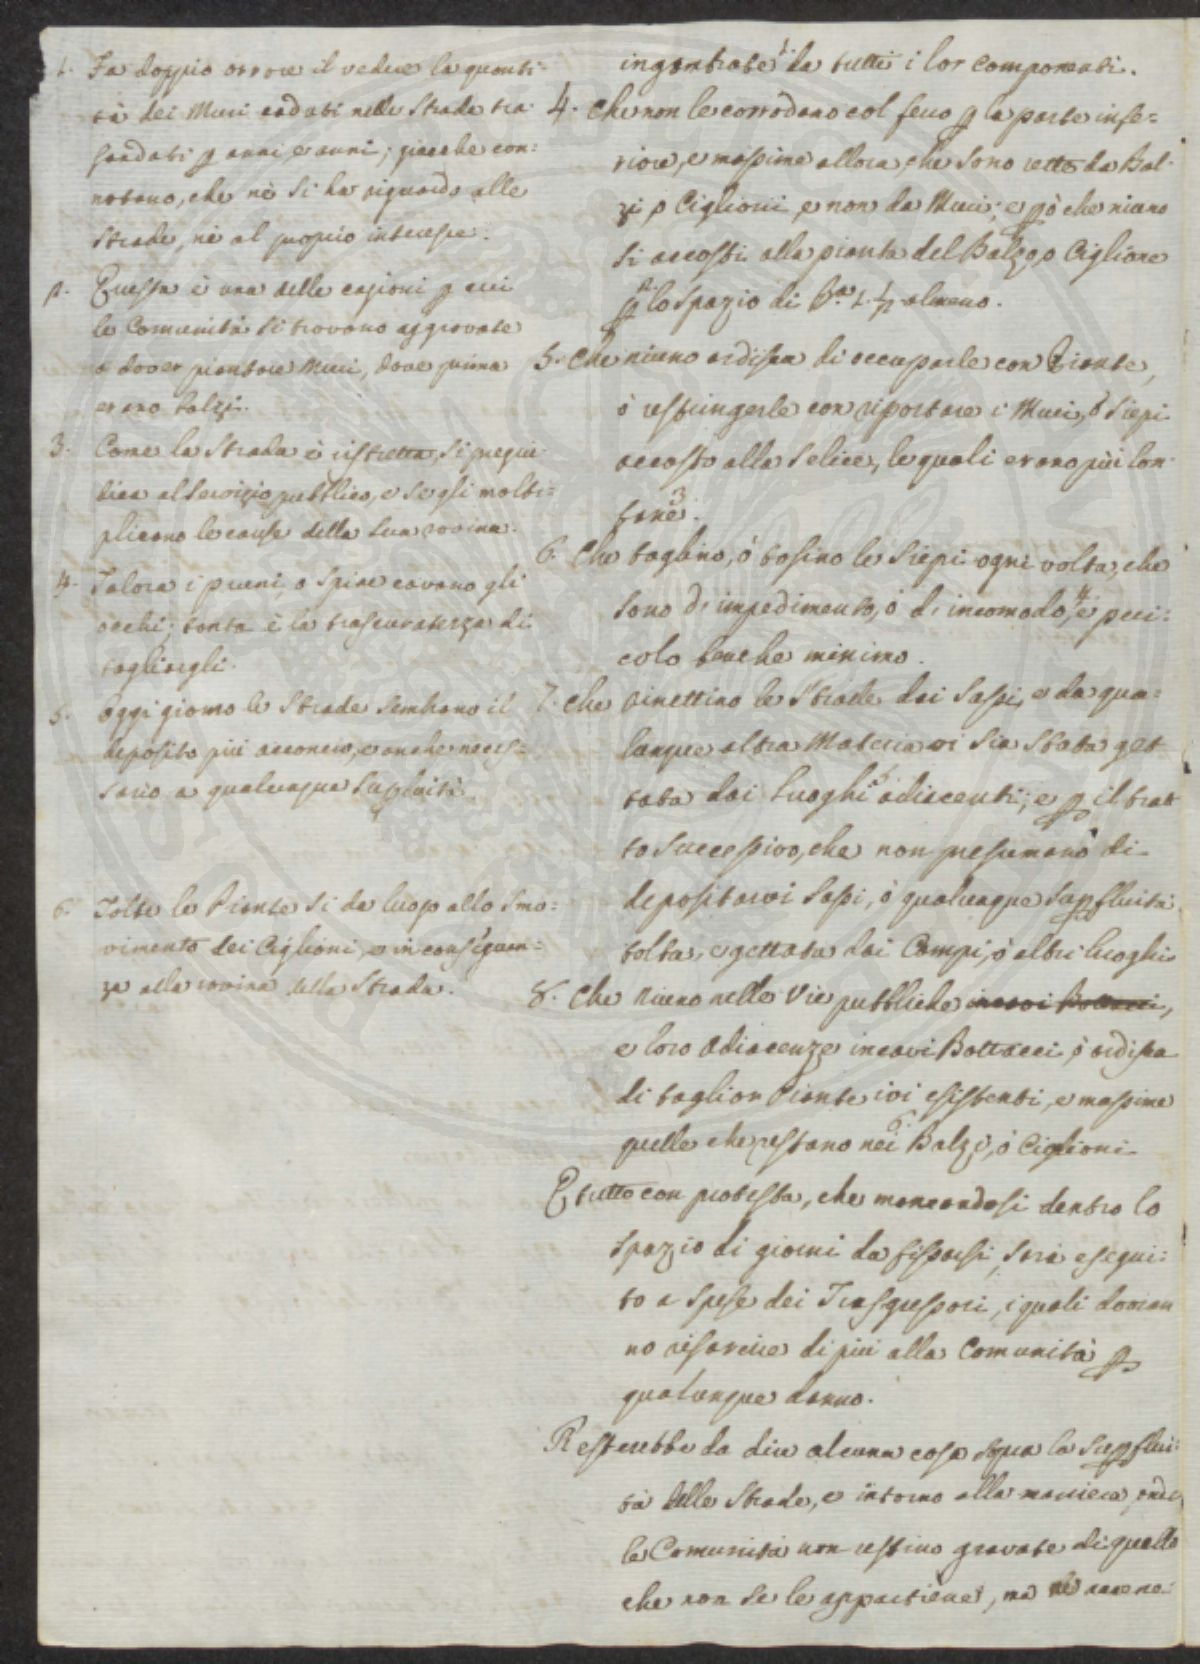 1. Fa doppio orrore il vedere la quanti-
tà dei Muri caduti nelle Strade tra-
sandati p anni, e anni; giacche con-
notano, che nè si ha riguardo alle
Strade, nè al proprio interesse.
2. Questa è una delle cagioni p cui
le Comunità si trovano aggravate
a dover piantare Muri, dove prima
erano balzi.
3. Come la Strada è ristretta, si pregiu-
dica al Servizio pubblico, e se gli molti-
plicano le cause della sua rovina.
4. Talora i pruni, o Spine cavano gli
occhi; tanta è la trascuratezza di
tagliargli.
5. Oggi giorno le Strade sembrano il
deposito più acconcio, e anche neces-
sario a qualunque Supfluità.
6. Tolte le Piante si da luogo allo Smo-
vimento dei Ciglioni, e in conseguen-
za alla rovina della Strada.
ingombrate 1. da tutti i lor componenti.
4. Che non le corrodano col ferro p la parte infe-
riore, e massime allora, che sono rette da Bal-
zi, o Ciglioni, e non da Muri; e pò che niuno
si accosti alla pianta del Balzo, o Ciglione
p lo spazio di B.a 1. ½ almeno. 2.
5. Che niuno ardisca di occuparle con Piante,
ò restringerle con riportare i Muri, ò Siepi
accosto alla Selice, le quali erano più lon-
tane. 3
6. Che taglino, ò tosino le Siepi ogni volta, che
sono di impedimento, ò di incomodo, 4 e peri-
colo benche minimo.
7. Che rinettino le Strade dai Sassi, e da qua-
lunque altra Materia vi sia stata get-
tata dai Luoghi 5 adiacenti; e p il trat-
to successivo, che non presumano di
depositarvi Sassi, ò qualunque Supfluità
tolta, e gettata dai Campi, ò altri luoghi.
8. Che niuno nelle Vie pubbliche incavi Bottacci,
e loro Adiacenze incavi Bottacci, ò ardisca
di tagliar Piante ivi esistenti, e massime
quelle che restano nei 6. Balzi, ò Ciglioni.
E tutto con protesta, che mancandosi dentro lo
Spazio di giorni da fissarsi, sarà esegui-
to a Spese dei Trasgressori, i quali dovran-
no risarcire di più alla Comunità p
qualunque danno.
Resterebbe da dire alcuna cosa sopra la Supflui-
tà delle Strade, e intorno alla maniera, onde
le Comunità non restino gravate di quello
che non se le appartiene, ma